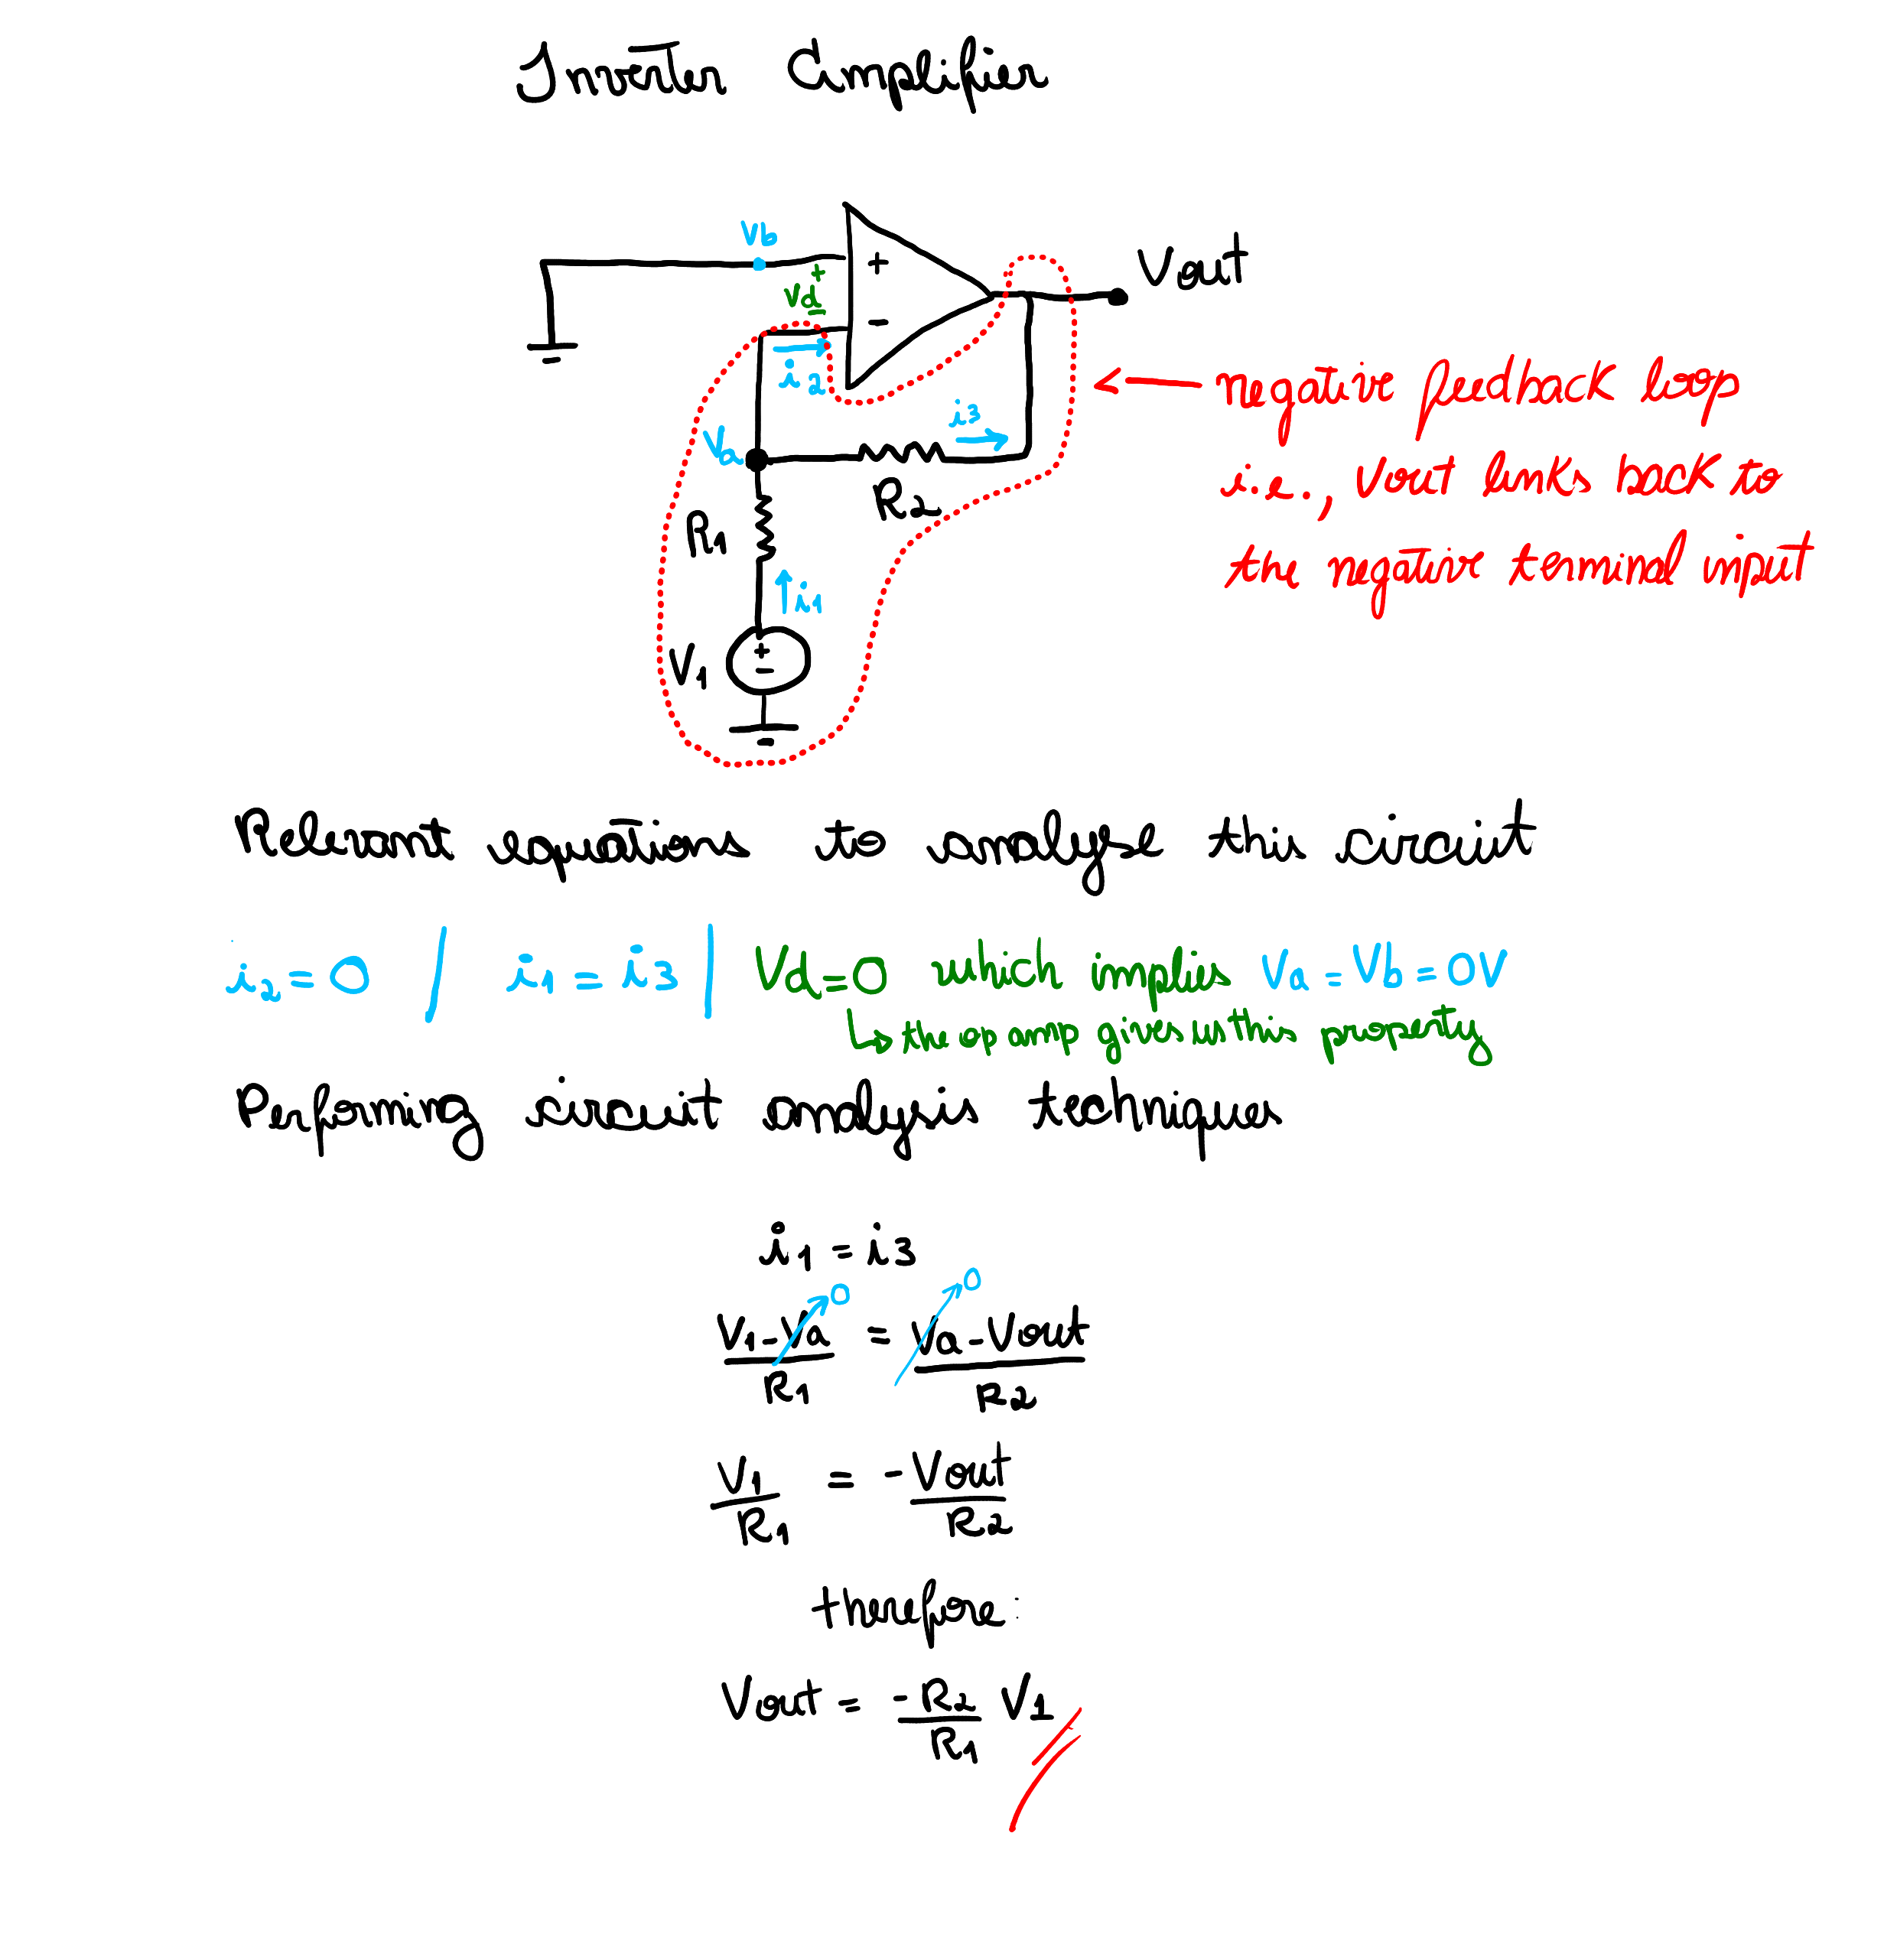 Inverter Amplifier
Vb
+
Vd
-
+
-
Vout
i2
i3
Va
R2
R1
i1
V1
+
-
← negative feedback loop
i.e., Vout links back to
the negative terminal input
Relevant equations to analyse this circuit
i2=0 / i1=i3 | Vd=0 which implies Va=Vb=0V
↳ the op amp gives us this property
Performing circuit analysis techniques
i1=i3
0 0
V1-Va = Va-Vout
R1 R2
V1 = -Vout
R1 R2
therefore:
Vout = -R2 V1
R1